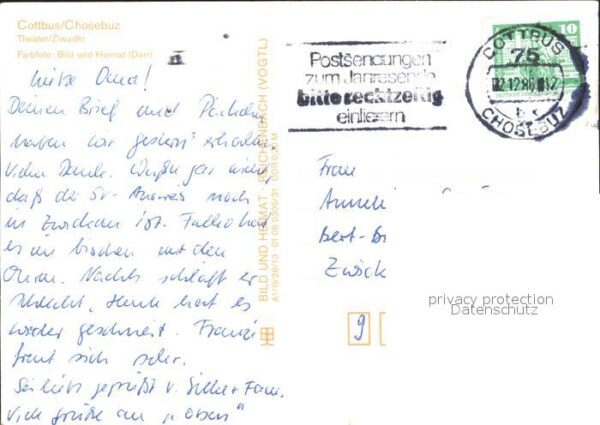 Cottbus/Chośebuz
Theater/Źiwadło
Farbfoto: Bild und Heimat (Darr)
Liebe Oma!
Deinen Brief und Päckchen
haben wir gestern erhalten
Vielen Dank. Wußte gar nicht,
daß der SV-Ausweis noch
in Zwickau ist. Falko hat
es ein bischen mit den
Ohren. Nachts schläft er
schlecht. Heute hat es
wieder geschneit. Franzi
freut sich sehr.
Sei lieb gegrüßt v. Silke + Fam.
Viele Grüße an "oben"
BILD UND HEIMAT · REICHENBACH (VOGTL)
A1/IV/26/13 01 06 0305/31 DDR 0,20 M
Postsendungen
zum Jahresende
bitte rechtzeitig
einliefern
COTTBUS
75
02.12.86
CHOŚEBUZ
10
Frau
Zwick
privacy protection
Datenschutz
9